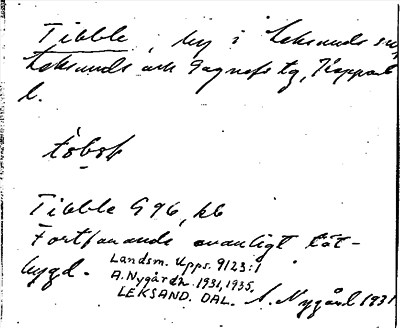 Tibble, by i Leksands sn,
Leksands och Gagnefs tg, Kopparb.
l.
Tibble G 96, kb
Fortfarande ovanligt tät-
bygd.
Landsm. Upps. 9123:1
A. Nygårdn 1931, 1935,
LEKSAND. DAL.
A. Nygård 1931